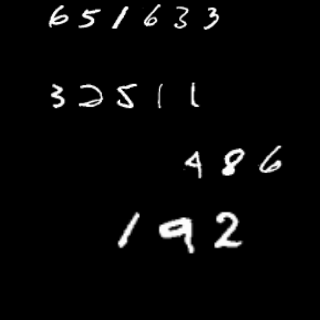 651633
32511
486
192